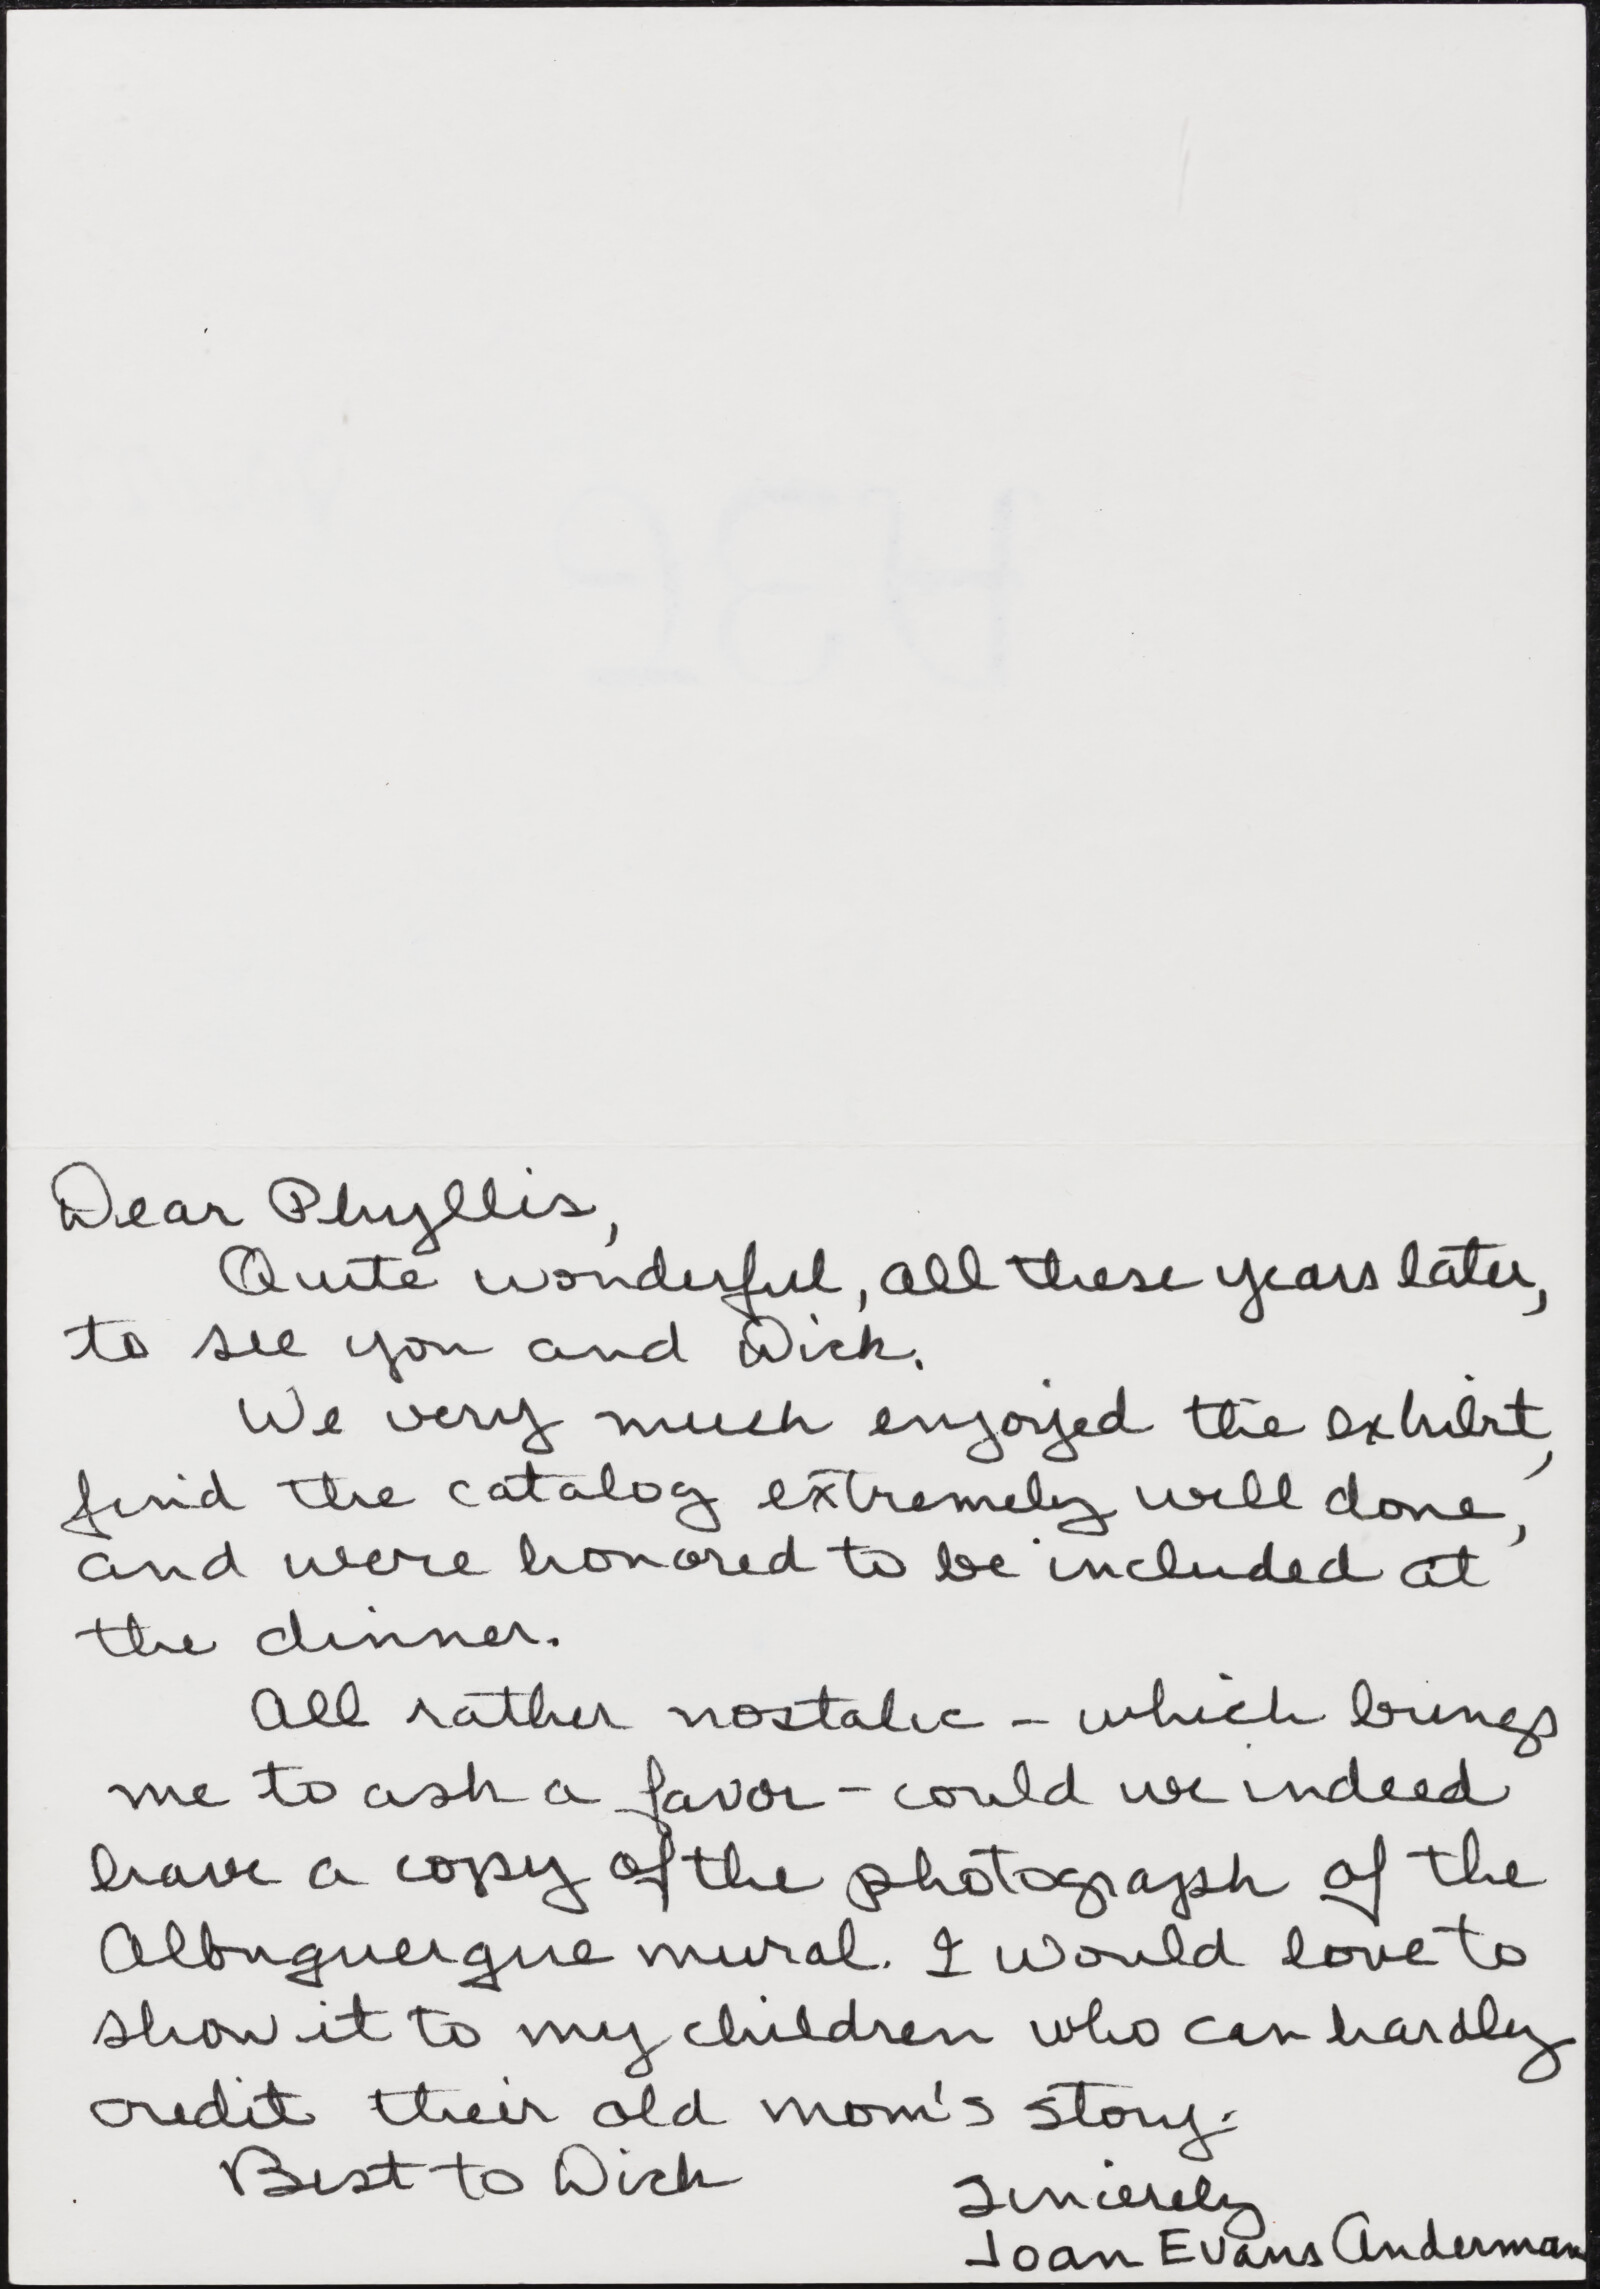 Dear Phyllis,
Quite wonderful, all these years later,
to see you and Dick.
We very much enjoyed the exhibit,
find the catalog extremely well done,
and were honored to be included at
the dinner.
All rather nostalic - which brings
me to ask a favor - could we indeed
have a copy of the photograph of the
Albuquerque mural. I would love to
show it to my children who can hardly
credit their old mom's story.
Best to Dick
Sincerely
Joan Evans Anderman